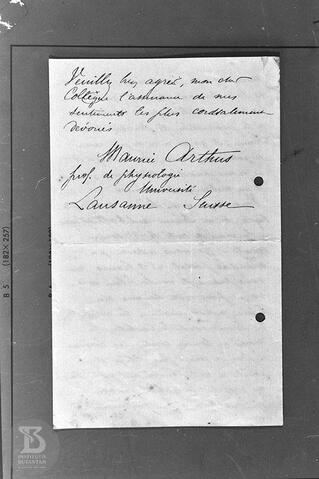 Veuillez bien agréer, mon cher
Collègue l'assurance de mes
sentiments les plus cordialement
dévoués
Maurice Arthus
prof. de physiologie
Université
Lausanne Suisse
B 5 (182 × 257)
INSTITUTO
BUTANTAN